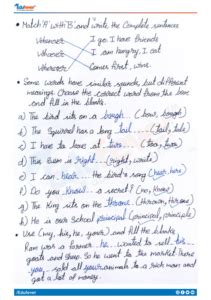 Eduhover
• Match "A" with "B" and write the Complete sentences
Whenever I go I have friends
Whoever I am hungry, I eat
Wherever Comes first, wins.
• Some words have similar sounds, but different
meanings Choose the correct word from the box
and fill in the blanks.
a) The bird sits on a bough. (bow, bough)
b) The Squirrel has a long tail (tail, tale)
c) I have to leave at two.
d) This Pen is right (right, write)
e) I can hear the bird's song (hear, here)
f) Do you know a secret? (no, know)
g) The King sits on the throne. (thrown, throne)
h) He is our School principal (principal, principle)
• Use (my, his, he, your) and fill the blanks.
Ram was a farmer. he wanted to sell his
goats and sheep. So he went to the market. There
you, sold all your animals to a rich man and
got a lot of money.